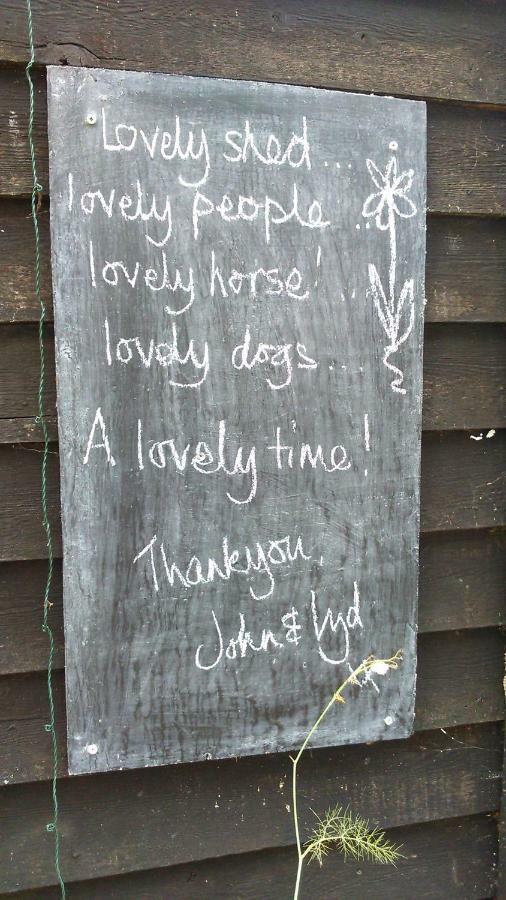 Lovely shed...
lovely people...
lovely horse!..
lovely dogs...
A lovely time!
Thankyou,
John & Lyd